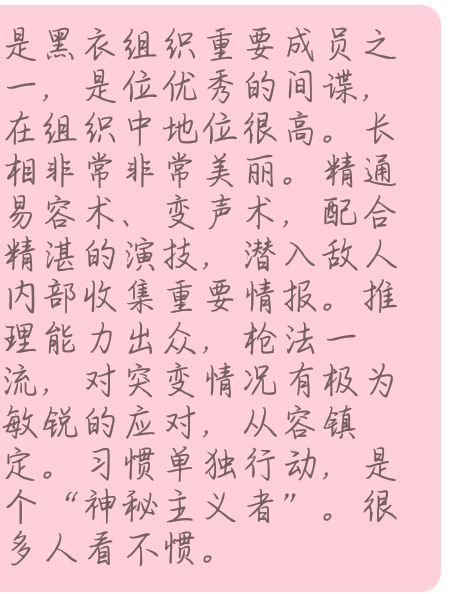 是黑衣组织重要成员之
一，是位优秀的间谍，
在组织中地位很高。长
相非常非常美丽。精通
易容术、变声术，配合
精湛的演技，潜入敌人
内部收集重要情报。推
理能力出众，枪法一
流，对突变情况有极为
敏锐的应对，从容镇
定。习惯单独行动，是
个“神秘主义者”。很
多人看不惯。